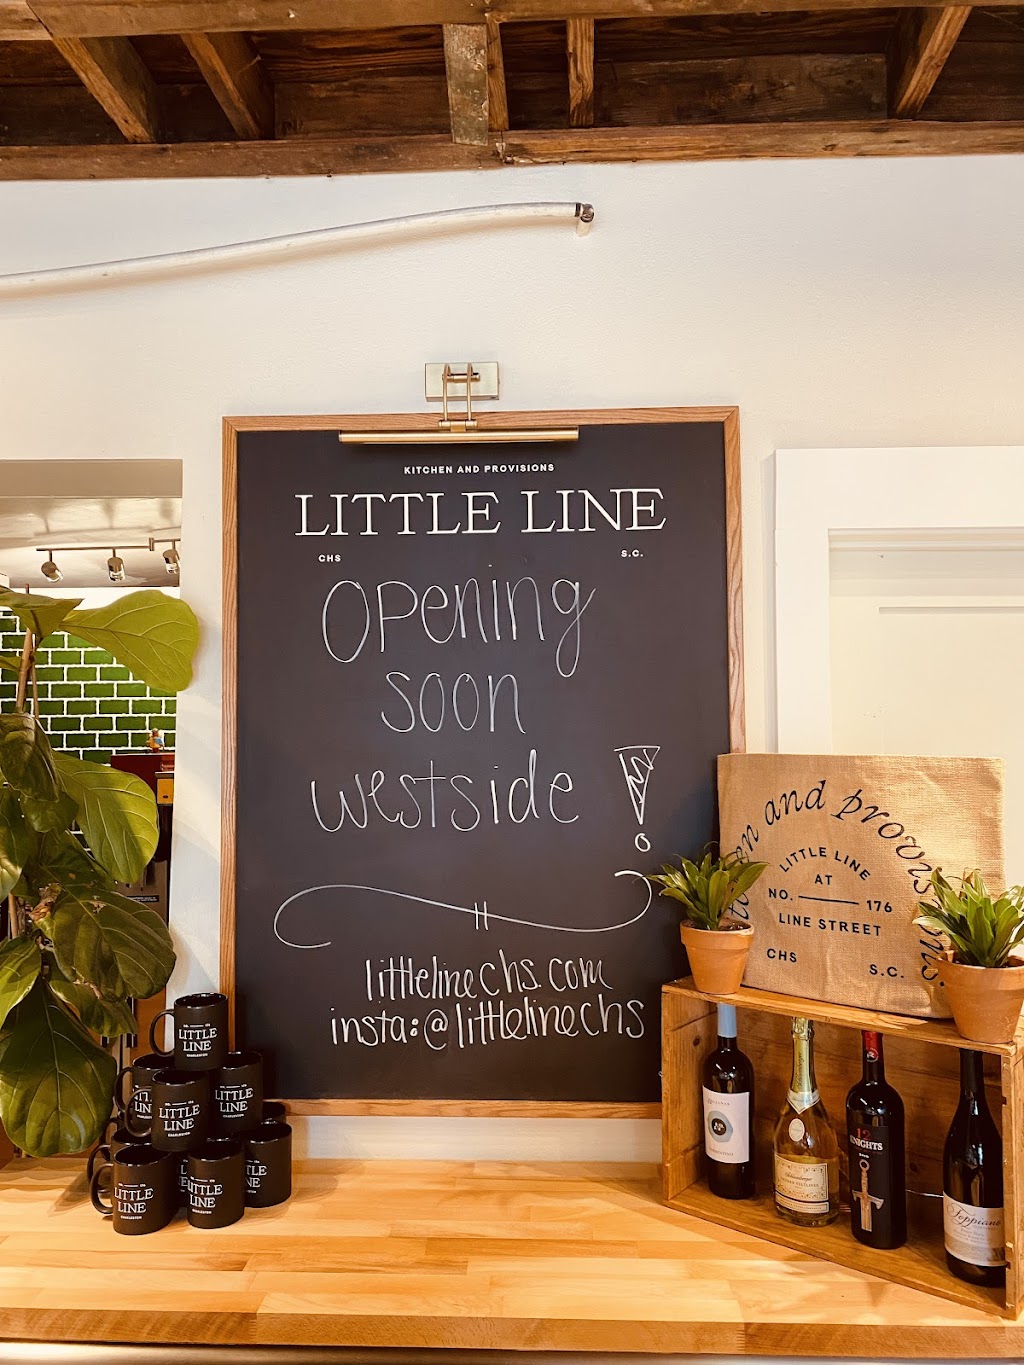 KITCHEN AND PROVISIONS
LITTLE LINE
CHS S.C.
Opening
soon
westside!
littlelinechs.com
insta:@littlelinechs
and provisions
LITTLE LINE
AT
NO. 176
LINE STREET
CHS S.C.
LITTLE
LINE
CHARLESTON
LITTLE
LINE
CHARLESTON
LITTLE
LINE
LITTLE
LINE
CHARLESTON
LITTLE
LINE
CHARLESTON
LITTLE
LINE
12
KNIGHTS
Foppiano